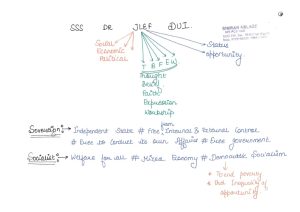 SSS DR JLEF DUI.
Social
Economic
Political
Status
opportunity
T B F E W
Thought
Belief
Faith
Expression
Worship
from
Sovereign: → Independent State # Free Internal & External Control
# Free to Conduct its own Affairs # Free government
Socialist: → Welfare for all # Mixed Economy # Democratic Socialism
* To end poverty
* End Inequality of
opportunity